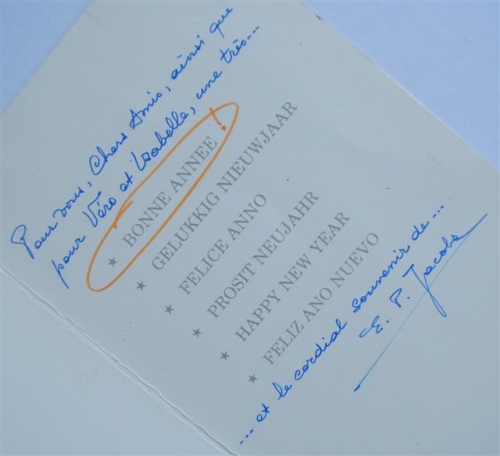 Pour vous, Chers Amis, ainsi que
pour Véro et Isabelle, une très...
★ BONNE ANNEE !
★ GELUKKIG NIEUWJAAR
★ FELICE ANNO
★ PROSIT NEUJAHR
★ HAPPY NEW YEAR
★ FELIZ ANO NUEVO
... et le cordial souvenir de ...
E. P. Jacobs